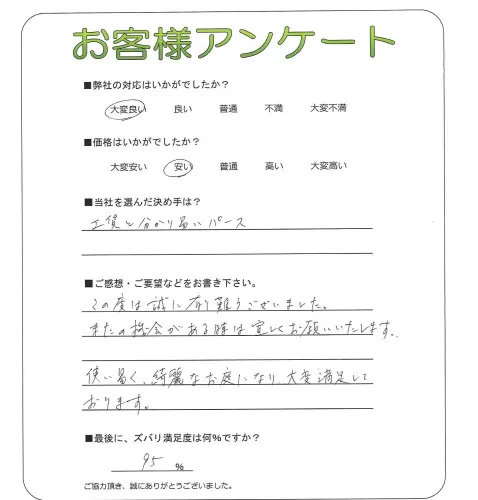 お客様アンケート
■弊社の対応はいかがでしたか？
大変良い 良い 普通 不満 大変不満
■価格はいかがでしたか？
大変安い 安い 普通 高い 大変高い
■当社を選んだ決め手は？
工賃と分かり易いパース
■ご感想・ご要望などをお書き下さい。
この度は誠に有難うございました。
またの機会がある時は宜しくお願いいたします。
使い易く、綺麗なお庭になり、大変満足して
おります。
■最後に、ズバリ満足度は何%ですか？
95 %
ご協力頂き、誠にありがとうございました。